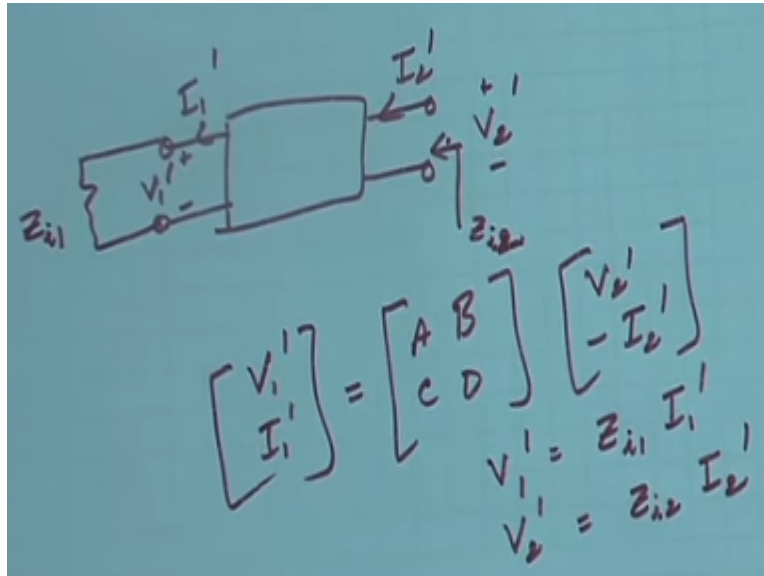 I₁' I₂'
+ V₁' - + V₂' -
Z_{i1} Z_{i2}
[V₁' I₁'] = [A B C D] [V₂' - I₂']
V₁' = Z_{i1} I₁'
V₂' = Z_{i2} I₂'